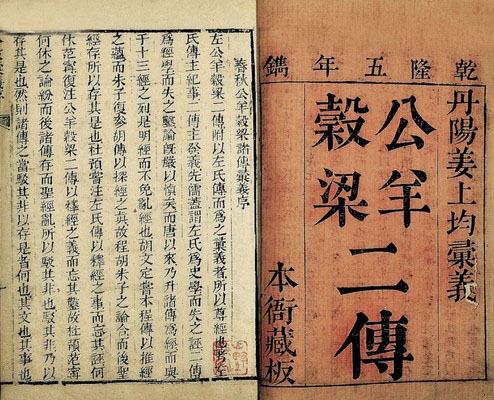 乾隆五年鐫
丹陽姜上均彙義
公羊
穀梁
二傳
本衙藏板
春秋公羊穀梁諸傳彙義序
左公羊穀梁二傳附以左氏傳而為之彙義者所以尊經也
氏傳主紀事二傳主發義先儒蓋謂左氏為史學而失之誣二傳
為經學而失之鑿論旣嚴以慎矣而唐以來乃升諸傳為經而與
于十三經之列是明經而不免亂經也胡文定嘗本程傳以推經
之蘊而朱子復參胡傳以探經之真故程胡朱子之論合而後聖
經存所以存其是也杜預嘗注左氏傳以釋經之事而忘其誣何
休范甯復注公羊穀梁二傳以釋經之義而忘其鑿故杜預范甯
何休之論紛而後諸傳存而聖經亂所以駁其非也駁其非以
存其是也然則諸傳之當駁其非以存是者何也其文也其事也